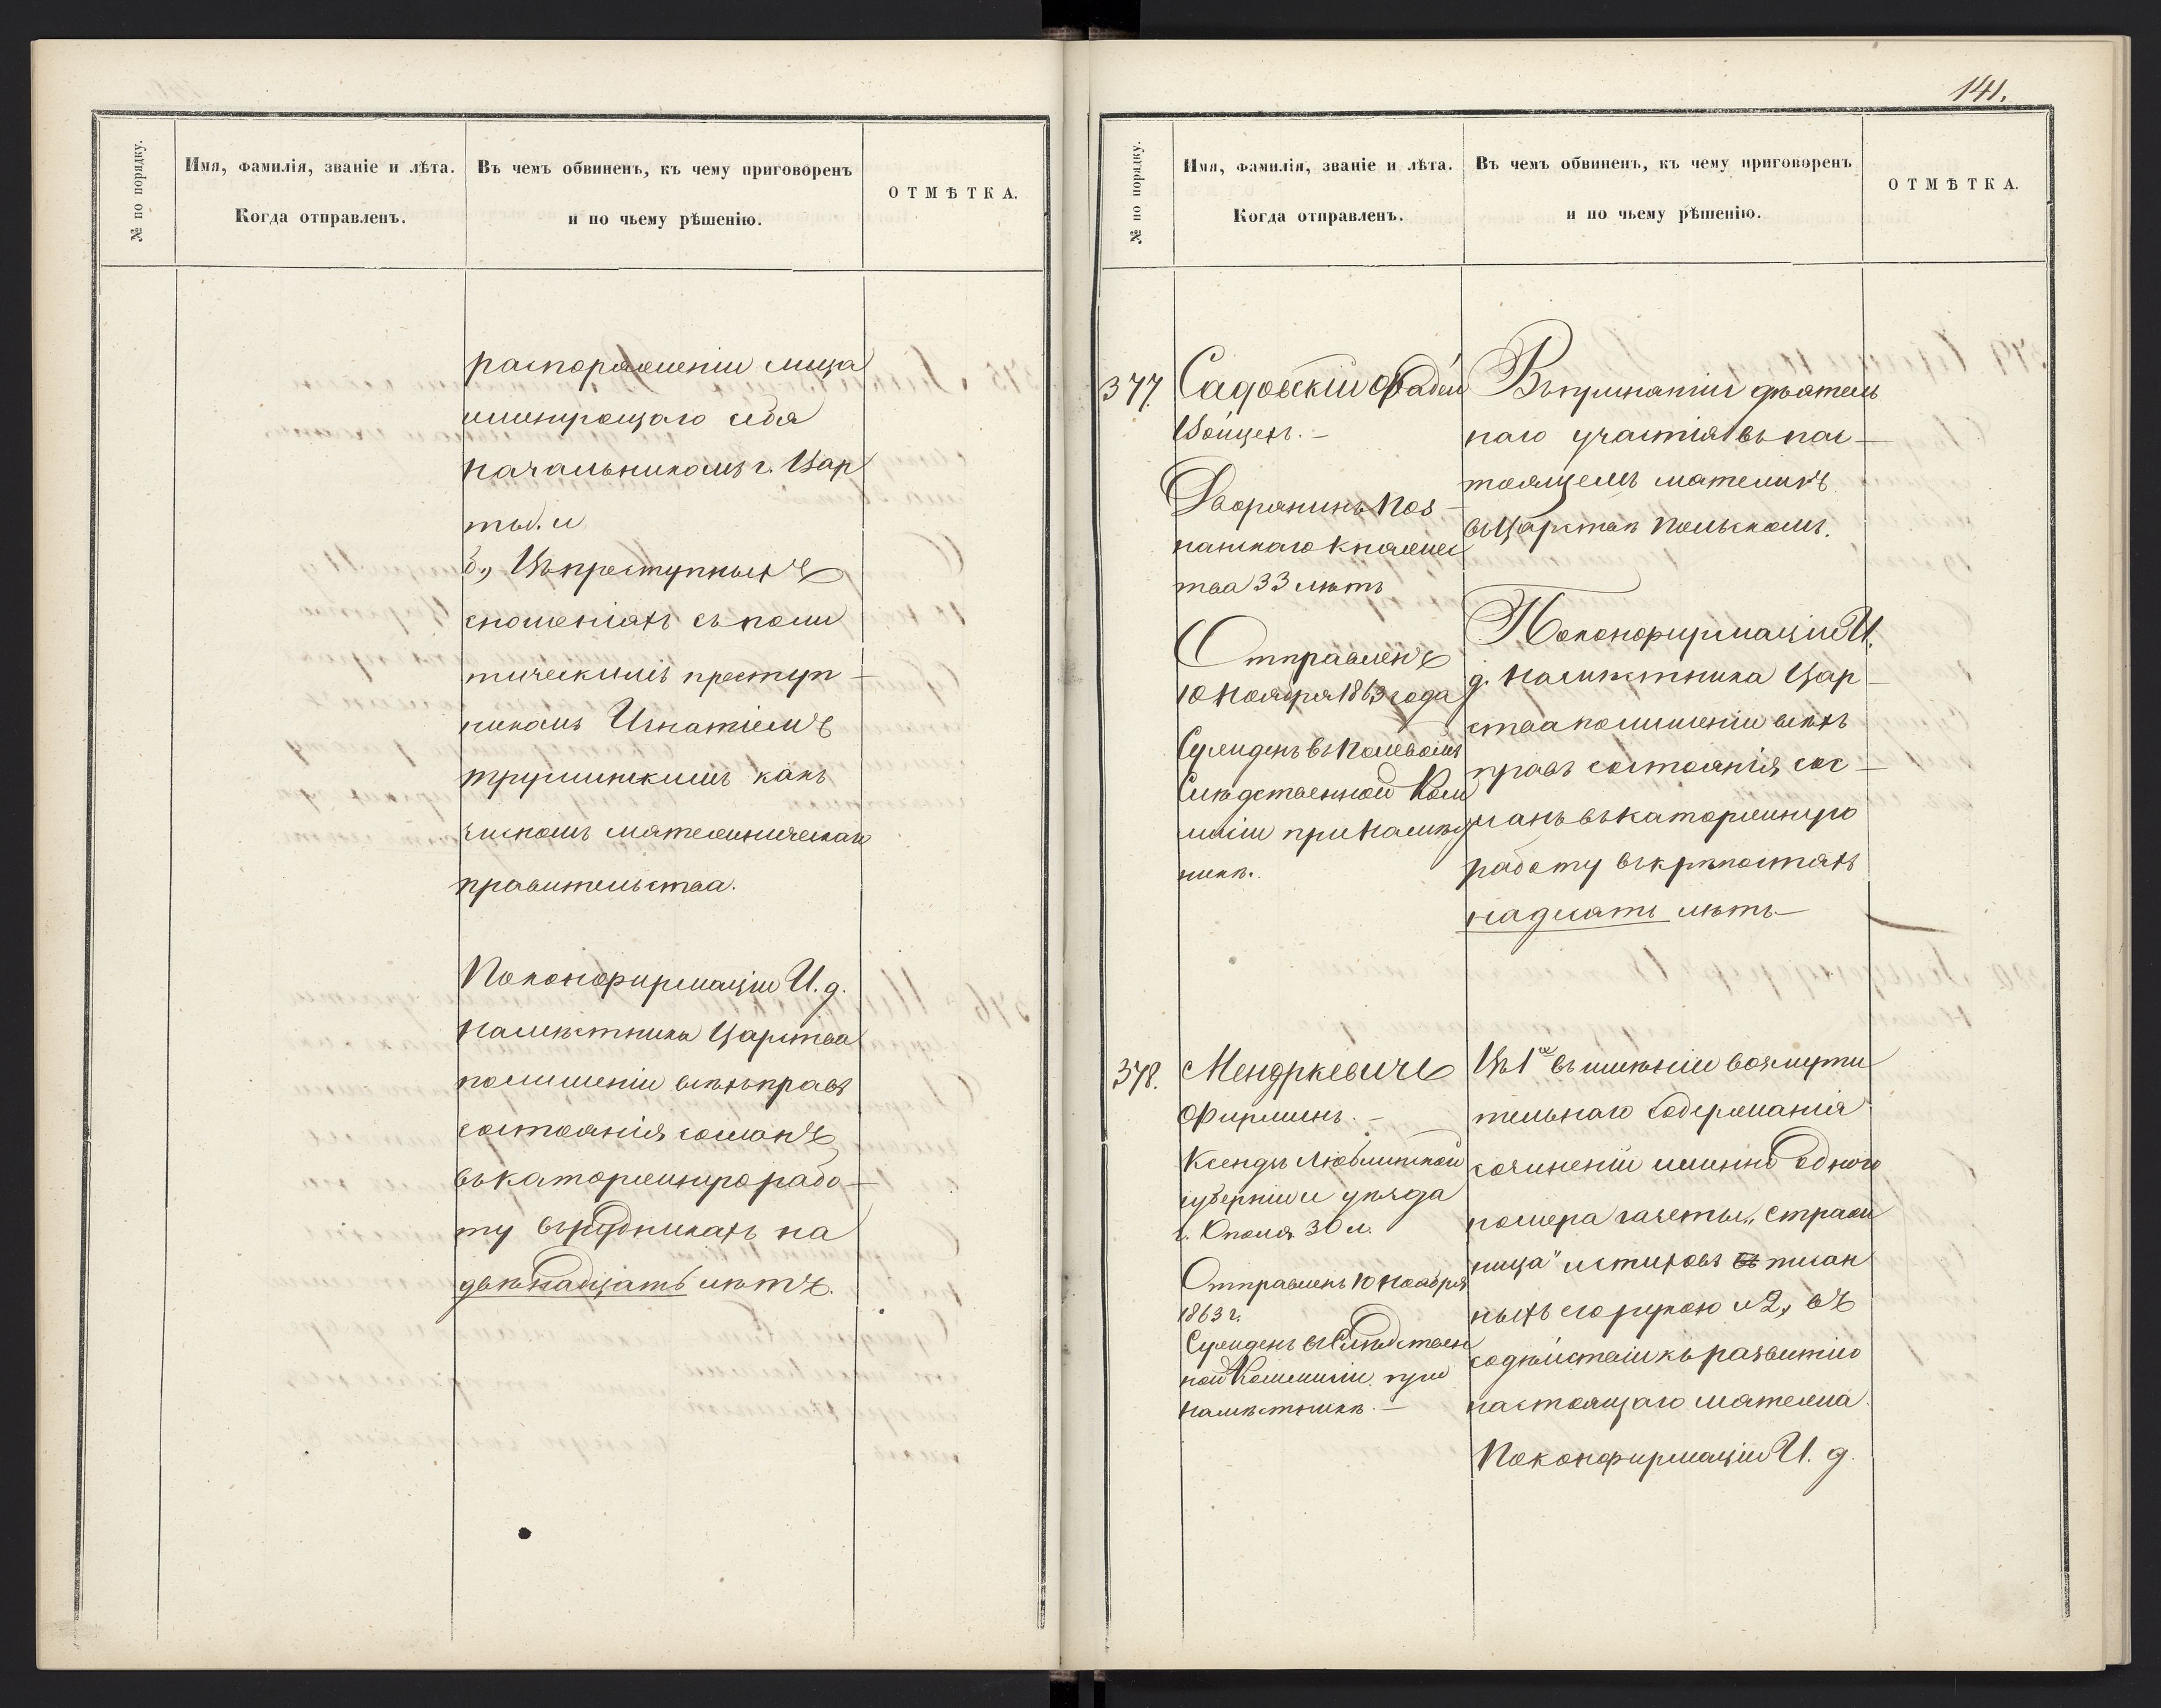 № по порядку.
Имя, фамилія, званіе и лѣта.
Когда отправленъ.
Въ чемъ обвиненъ, къ чему приговоренъ
и по чьему рѣшенію.
ОТМѢТКА.
распоряженіи лица
именующаго себя
начальникомъ г. Вар
ты. и
б., Въ преступныхъ
сношеніяхъ съ поли
тическимъ преступ-
никомъ Игнатіемъ
трушинскимъ какъ
членомъ мятежническаго
правительства.
По конфирмаціи И. д.
намѣстника Царства
по лишеніи всѣхъ правъ
состоянія сосланъ
въ каторжную рабо-
ту въ рудникахъ на
двѣнадцать лѣтъ.
141.
№ по порядку.
Имя, фамилія, званіе и лѣта.
Когда отправленъ.
Въ чемъ обвиненъ, къ чему приговоренъ
и по чьему рѣшенію.
ОТМѢТКА.
377. Садовскій Фабеи
Войцех. -
Дворянинъ Поз-
нанскаго Княжес
тва 33 лѣтъ
Отправленъ
10 Ноября 1863 года
Сужденъ въ Полевомъ
Слѣдственной Ком
мисіи при Намѣст
никѣ.
Въ принятіи дѣятель
наго участія въ нас-
тоящемъ мятежѣ
въ Царствѣ Польскомъ.
По конфирмаціи И.
д. Намѣстника Цар-
ства по лишеніи всѣхъ
правъ состоянія сос-
ланъ въ каторжную
работу въ крѣпостяхъ
на десять лѣтъ-
378. Мендркевичъ
Фирминъ. -
Ксендзъ Люблинской
губерніи и уѣзда
г. Ополя 30 л.
Отправленъ 10 Ноября
1863 г.
Сужденъ въ Слѣдствен
ной Коммисіи при
намѣстникѣ. -
Въ 1хъ въ имѣніи возмути
тельнаго содержанія
сочиненій именно одного
номера газеты „Стражни
ница" и стиховъ въ писан
ныхъ его рукою и 2, въ
содѣйствіи къ развитію
настоящаго мятежа.
По конфирмаціи И. д.